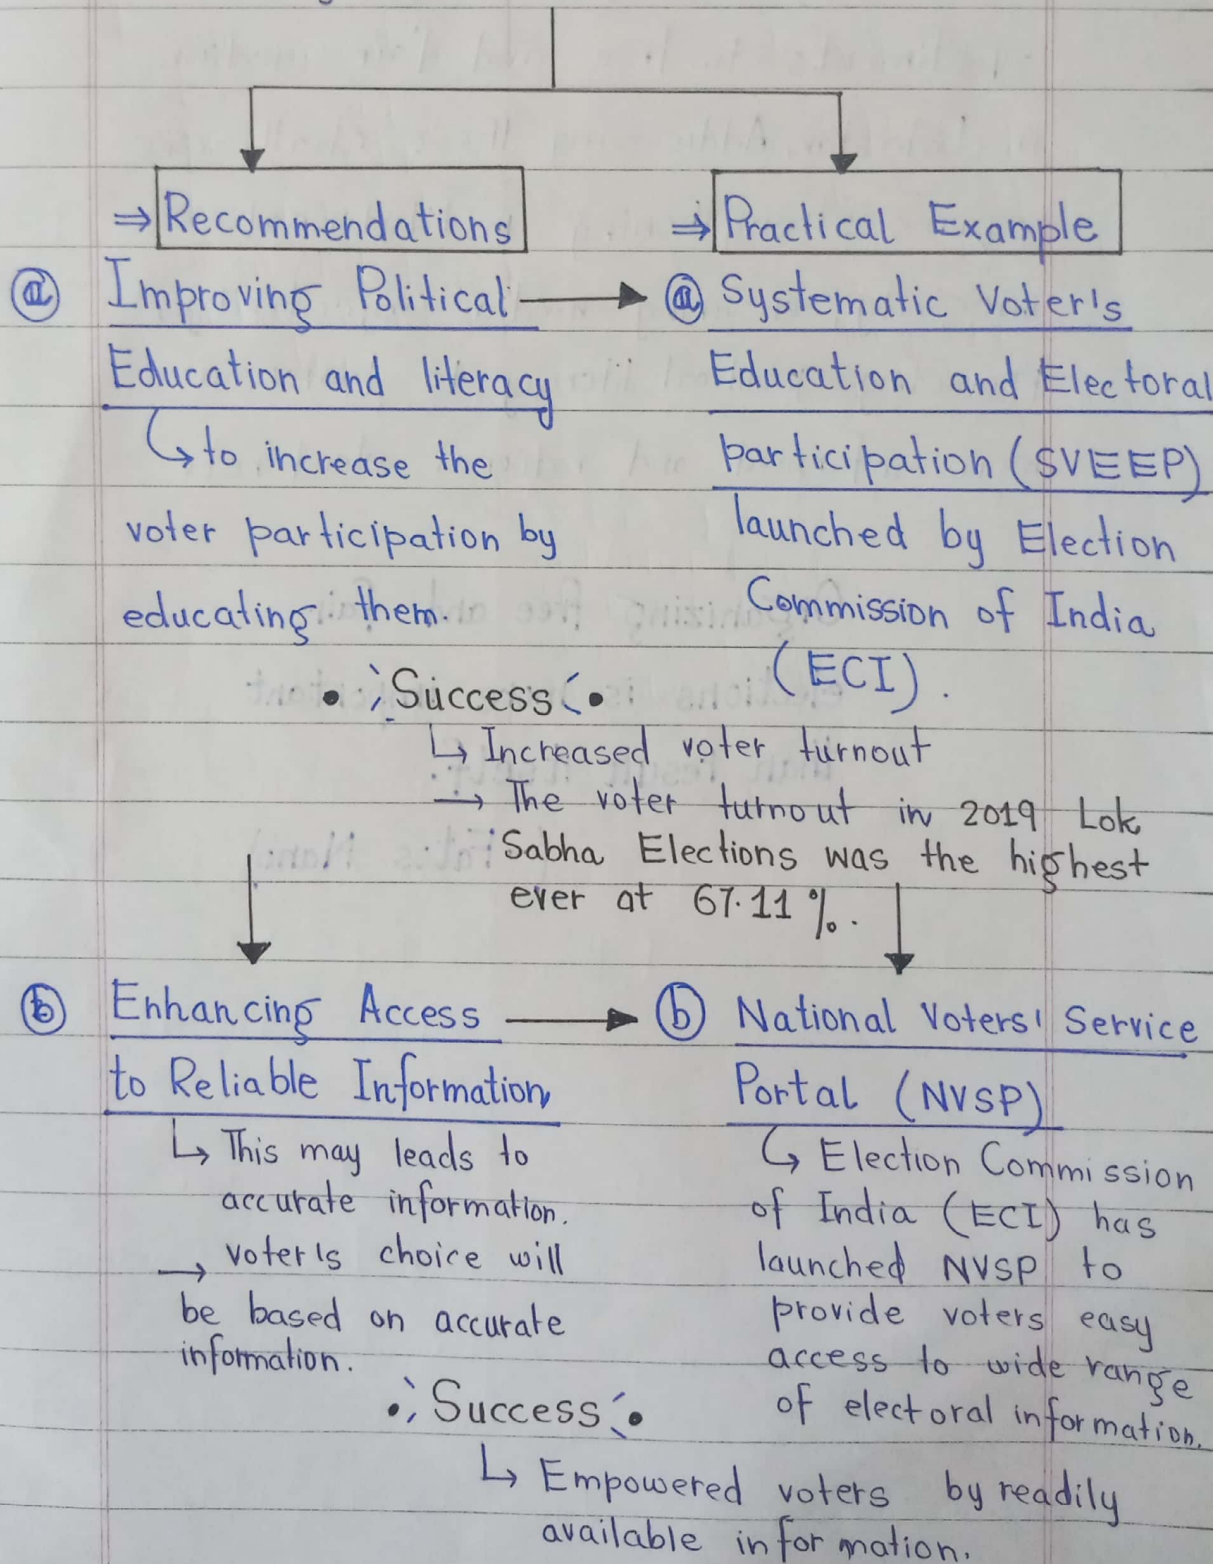 ⇒ Recommendations
⇒ Practical Example
ⓐ Improving Political
Education and literacy
↳ to increase the
voter participation by
educating them.
ⓐ Systematic Voter's
Education and Electoral
participation (SVEEP)
launched by Election
Commission of India
(ECI).
Success
↳ Increased voter turnout
→ The voter turnout in 2019 Lok
Sabha Elections was the highest
ever at 67.11 %.
ⓑ Enhancing Access
to Reliable Information
↳ This may leads to
accurate information.
→ voter's choice will
be based on accurate
information.
ⓑ National Voters' Service
Portal (NVSP)
↳ Election Commission
of India (ECI) has
launched NVSP to
provide voters easy
access to wide range
of electoral information.
Success
↳ Empowered voters by readily
available information.